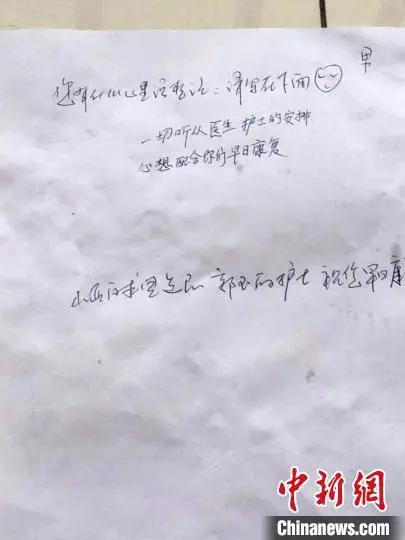 男
您有什么心里话想说：请写在下面
一切听从医生 护士的安排
心想配合你们早日康复
山西 护士 祝您早日康
中新网
Chinanews.com